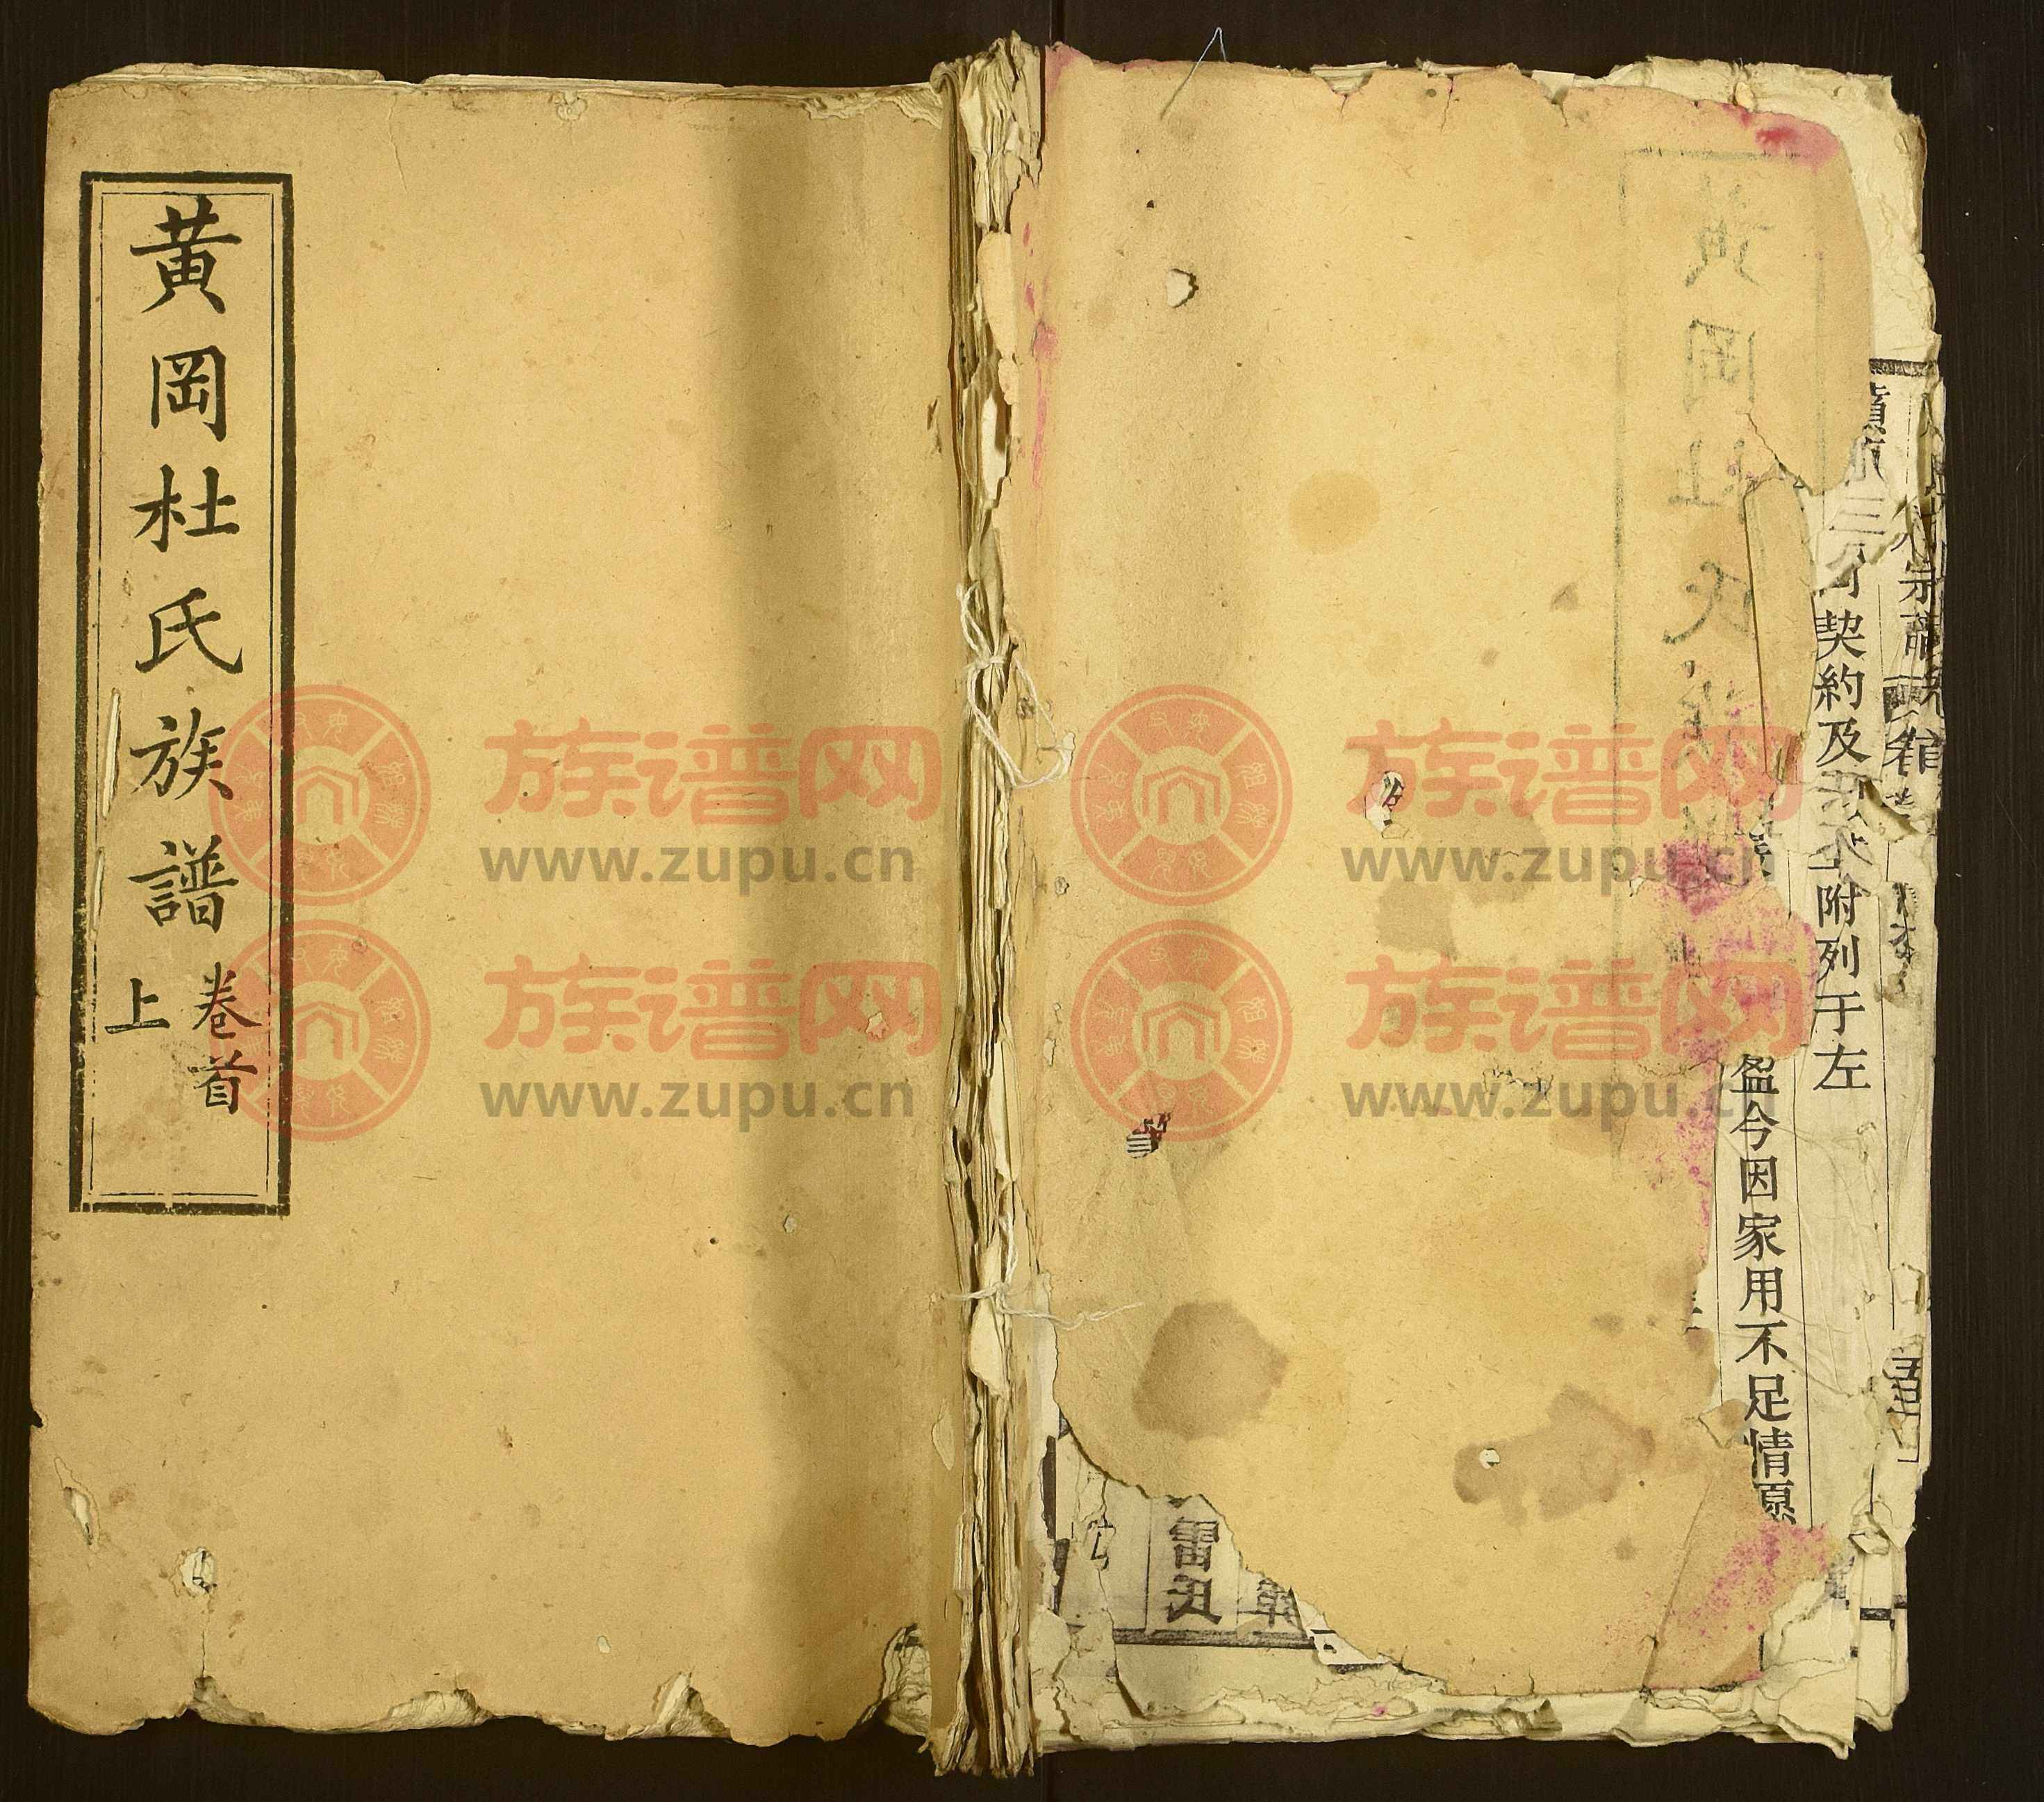 黃岡杜氏族譜
卷首
上
族谱网
www.zupu.cn
族谱网
www.zupu.cn
族谱网
www.zupu.cn
族谱网
www.zupu.cn
黃岡杜氏族
宗譜
契約及
附列于左
盈今因家用不足情愿
雷